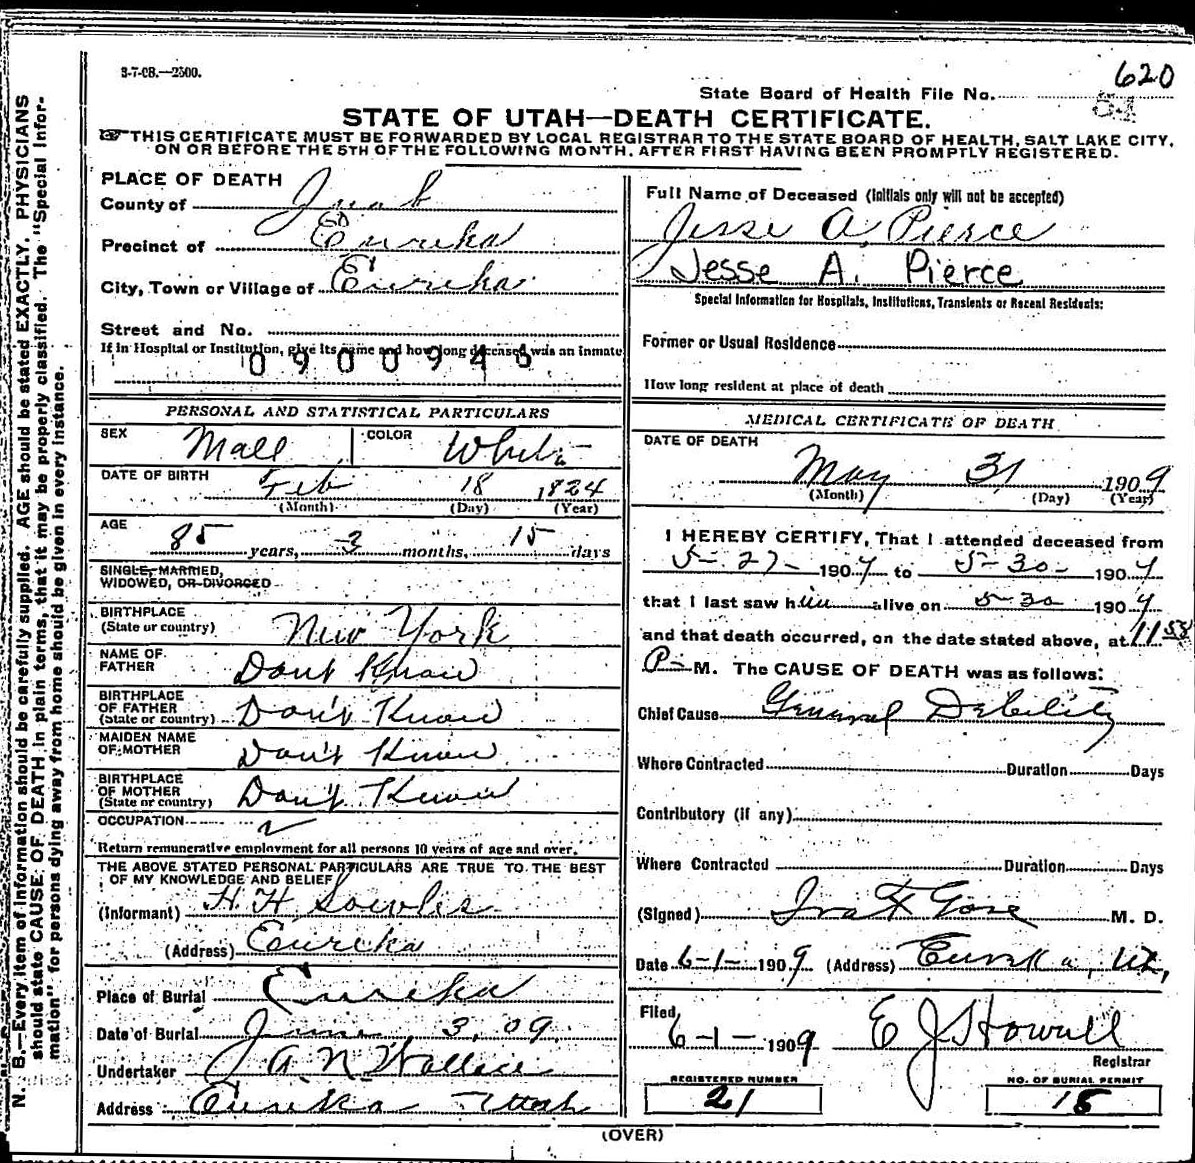 3-7-CB.—2500.
620
State Board of Health File No.
STATE OF UTAH—DEATH CERTIFICATE.
THIS CERTIFICATE MUST BE FORWARDED BY LOCAL REGISTRAR TO THE STATE BOARD OF HEALTH, SALT LAKE CITY,
ON OR BEFORE THE 5TH OF THE FOLLOWING MONTH, AFTER FIRST HAVING BEEN PROMPTLY REGISTERED.
PLACE OF DEATH
County of Juab
Precinct of Eureka
City, Town or Village of Eureka
Street and No.
If in Hospital or Institution, give its name and how long deceased was an inmate
0900945
PERSONAL AND STATISTICAL PARTICULARS
SEX Male COLOR White
DATE OF BIRTH
Feb 18 1824
(Month) (Day) (Year)
AGE
85 years, 3 months, 15 days
SINGLE, MARRIED,
WIDOWED, OR DIVORCED
BIRTHPLACE
(State or country) New York
NAME OF
FATHER Dont Know
BIRTHPLACE
OF FATHER
(State or country) Don't Know
MAIDEN NAME
OF MOTHER Don't Know
BIRTHPLACE
OF MOTHER
(State or country) Don't Know
OCCUPATION
Return remunerative employment for all persons 10 years of age and over.
THE ABOVE STATED PERSONAL PARTICULARS ARE TRUE TO THE BEST
OF MY KNOWLEDGE AND BELIEF
(Informant) H. H. Sowles
(Address) Eureka
Place of Burial Eureka
Date of Burial June 3, 09.
Undertaker A. N. Wallace
Address Eureka Utah
Full Name of Deceased (Initials only will not be accepted)
Jesse A. Pierce
Jesse A. Pierce
Special Information for Hospitals, Institutions, Transients or Recent Residents:
Former or Usual Residence
How long resident at place of death
MEDICAL CERTIFICATE OF DEATH
DATE OF DEATH
May 31 1909
(Month) (Day) (Year)
I HEREBY CERTIFY, That I attended deceased from
5-27- 1909 to 5-30- 1909
that I last saw him alive on 5-30 1909
and that death occurred, on the date stated above, at 11 58
P- M. The CAUSE OF DEATH was as follows:
Chief Cause General Debility
Where Contracted Duration Days
Contributory (if any)
Where Contracted Duration Days
(Signed) Ira F Gose M. D.
Date 6-1- 1909 (Address) Eureka, Ut,
Filed
6-1- 1909 E J Howell
Registrar
REGISTERED NUMBER
21
NO. OF BURIAL PERMIT
18
(OVER)
N. B.—Every item of information should be carefully supplied. AGE should be stated EXACTLY. PHYSICIANS
should state CAUSE OF DEATH in plain terms, that it may be properly classified. The "Special Infor-
mation" for persons dying away from home should be given in every instance.